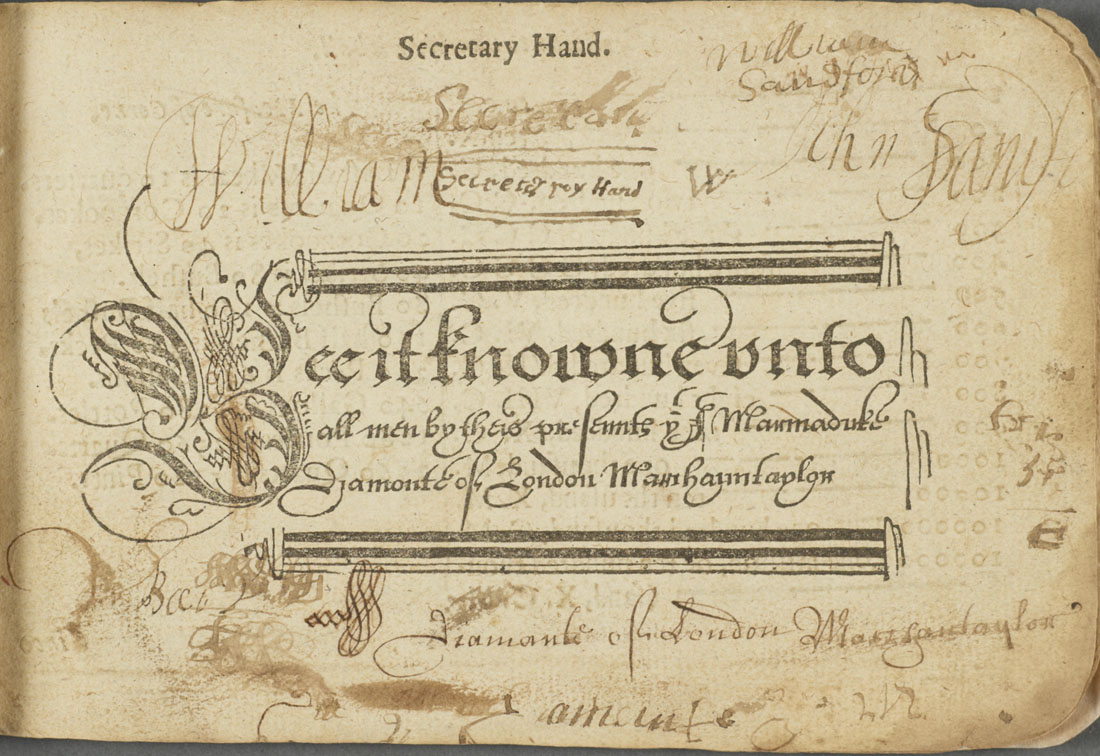 Secretary Hand.
William
Sandford
Secreta
William
Secreterry Hand
W
John
Bee it knowne vnto
all men by theis presentes yͭ I Marmaduke
Diamonte of London Marchauntaylor
Bee
Diamante of London Marchantaylor